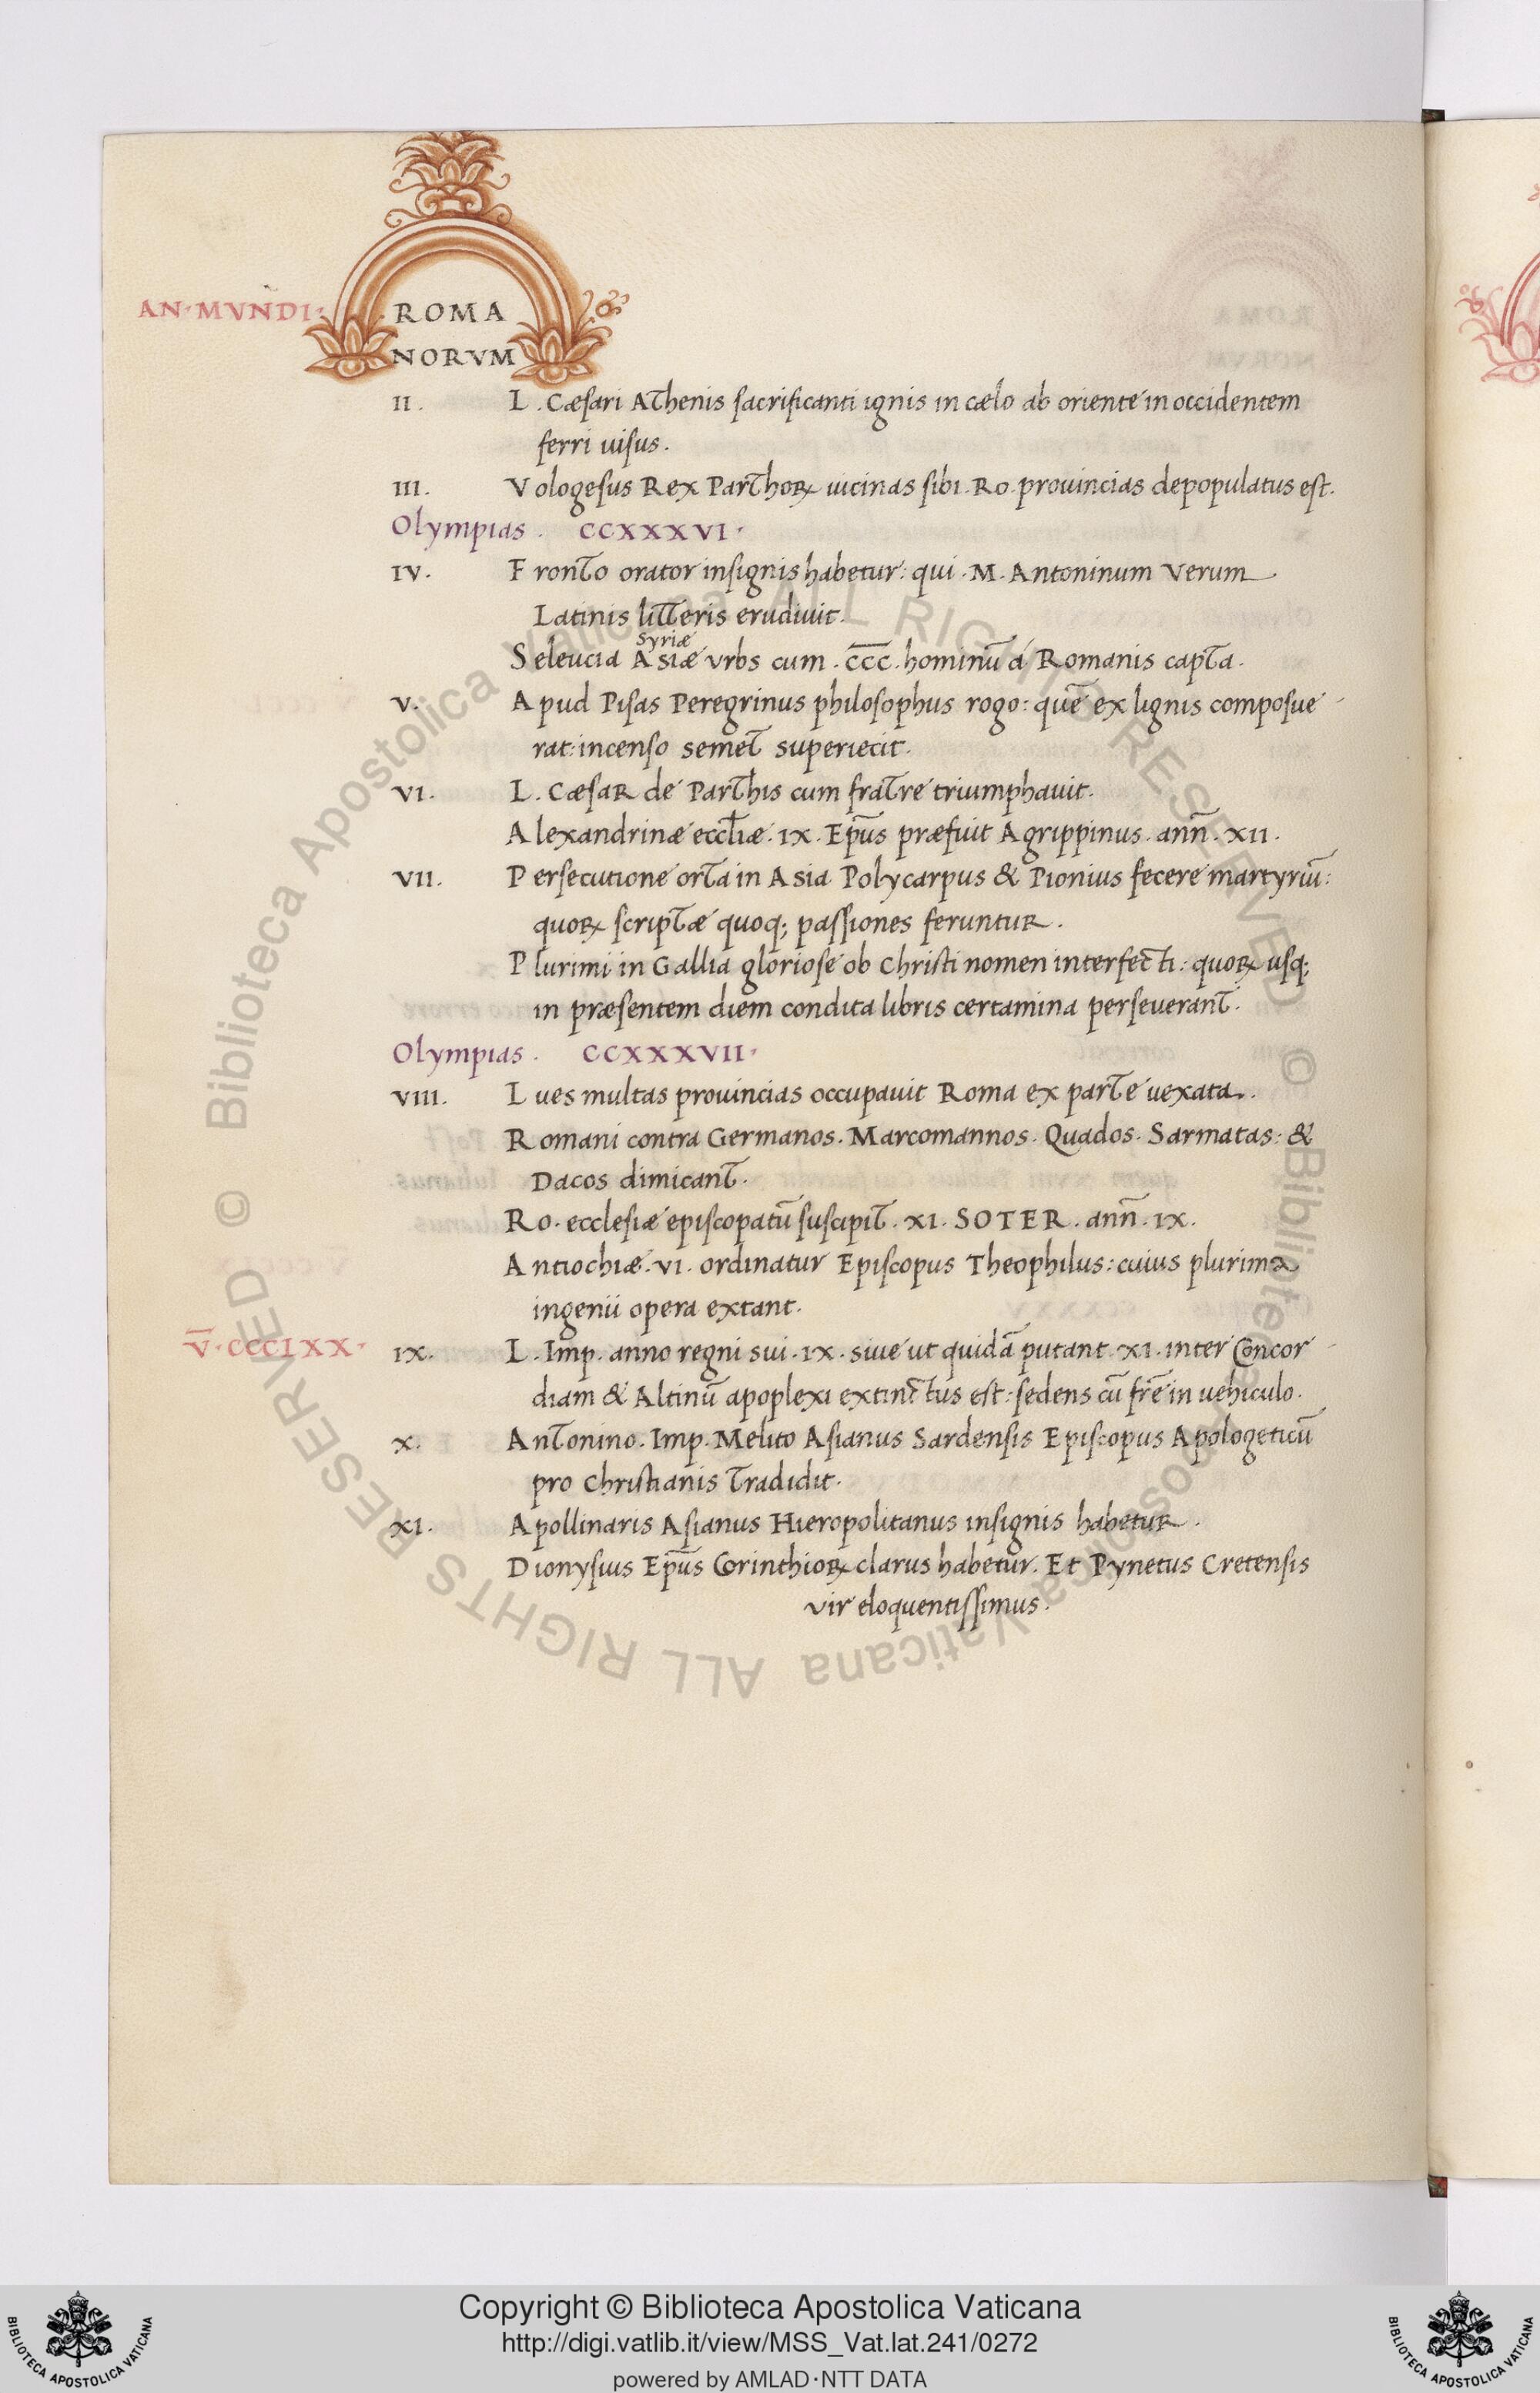 AN·MVNDI·
ROMA
NORVM
II. L. Cæsari Athenis sacrificanti ignis in cælo ab oriente in occidentem
ferri uisus.
III. Vologesus Rex Parthoꝝ uicinas sibi. Ro. prouincias depopulatus est.
Olympias. CCXXXVI·
IV. Fronto orator insignis habetur: qui. M. Antoninum Verum
Latinis litteris erudiuit.
Syriæ
Seleucia Asiæ vrbs cum. C̅C̅C̅. hominū á Romanis capta.
V. Apud Pisas Peregrinus philosophus rogo: quē ex lignis composue
rat: incenso semet superiecit.
VI. L. Cæsar de Parthis cum fratre triumphauit.
Alexandrinæ eccl̄iæ. IX. Ep̄us præfuit Agrippinus. ann̄. XII.
VII. Persecutione orta in Asia Polycarpus & Pionius fecere martyriū:
quoꝝ scriptæ quoq; passiones feruntur.
Plurimi in Gallia gloriose ob Christi nomen interfecti: quoꝝ usq;
in præsentem diem condita libris certamina perseuerant.
Olympias. CCXXXVII·
VIII. Lues multas prouincias occupauit Roma ex parte uexata.
Romani contra Germanos. Marcomannos. Quados. Sarmatas: &
Dacos dimicant.
Ro. ecclesiæ episcopatū suscipit. XI. SOTER. ann̄. IX.
Antiochiæ. VI. ordinatur Episcopus Theophilus: cuius plurima
ingenii opera extant.
V̅·CCCLXX·
IX. L. Imp. anno regni sui. IX. siue ut quidā putant. XI. inter Concor
diam & Altinū apoplexi extinctus est: sedens cū fr̄e in uehiculo.
X. Antonino. Imp. Melito Asianus Sardensis Episcopus Apologeticū
pro Christianis Tradidit.
XI. Apollinaris Asianus Hieropolitanus insignis habetur.
Dionysius Ep̄us Corinthioꝝ clarus habetur. Et Pynetus Cretensis
vir eloquentissimus.
© Biblioteca Apostolica Vaticana ALL RIGHTS RESERVED
© Biblioteca Apostolica Vaticana ALL RIGHTS RESERVED
BIBLIOTECA APOSTOLICA VATICANA
Copyright © Biblioteca Apostolica Vaticana
http://digi.vatlib.it/view/MSS_Vat.lat.241/0272
powered by AMLAD·NTT DATA
BIBLIOTECA APOSTOLICA VATICANA